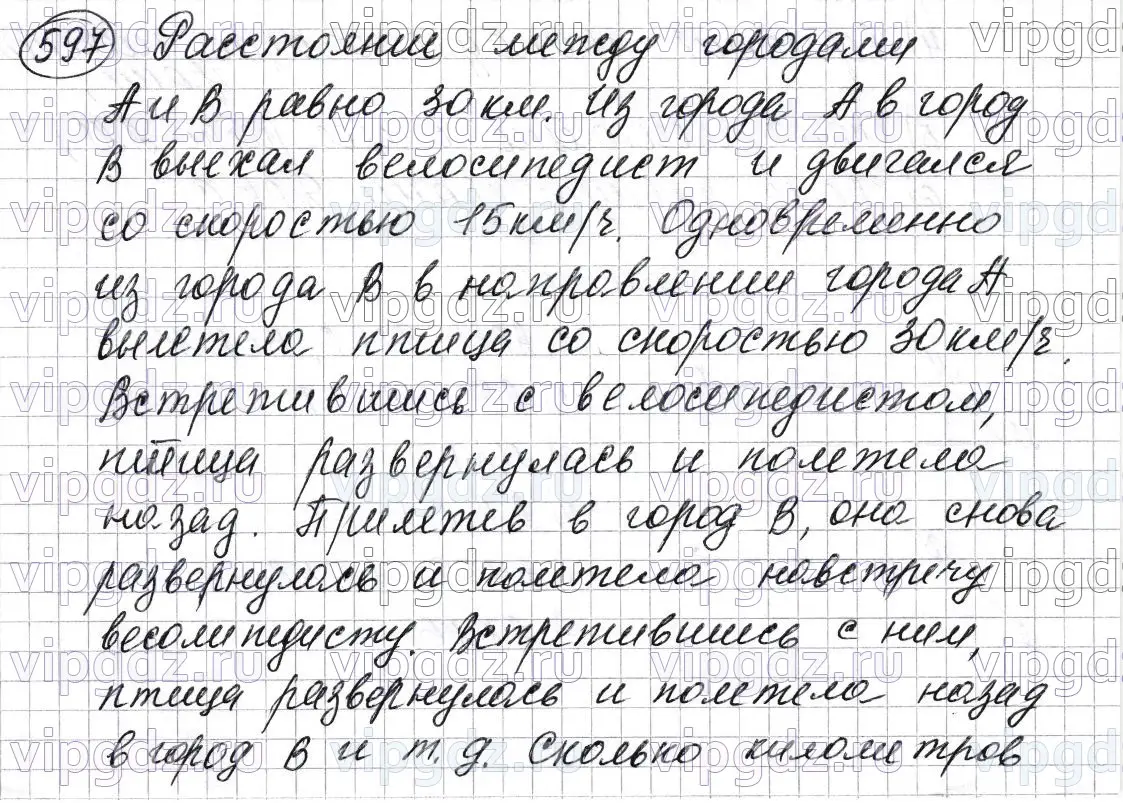 597 Расстояние между городами
А и В равно 30 км. Из города А в город
В выехал велосипедист и двигался
со скоростью 15 км/ч. Одновременно
из города В в направлении города А
вылетела птица со скоростью 30 км/ч.
Встретившись с велосипедистом,
птица развернулась и полетела
назад. Прилетев в город В, она снова
развернулась и полетела навстречу
весолипедисту. Встретившись с ним,
птица развернулась и полетела назад
в город В и т. д. Сколько километров